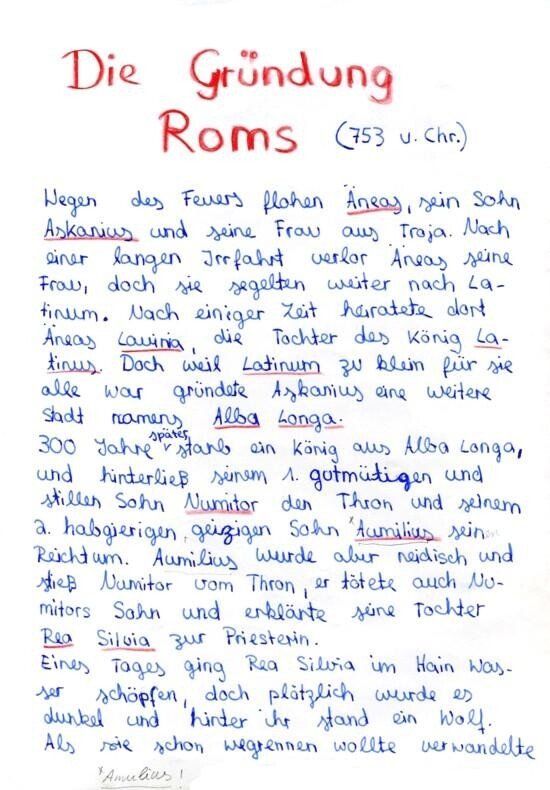 Die Gründung
Roms (753 v. Chr.)
Wegen des Feuers flohen Äneas, sein Sohn
Askanius und seine Frau aus Troja. Nach
einer langen Irrfahrt verlor Äneas seine
Frau, doch sie segelten weiter nach La-
tinum. Nach einiger Zeit heiratete dort
Äneas Lavinia, die Tochter des König La-
tinus. Doch weil Latinum zu klein für sie
alle war gründete Askanius eine weitere
Stadt namens Alba Longa.
300 Jahre später starb ein König aus Alba Longa,
und hinterließ seinem 1. gutmütigen und
stillen Sohn Numitor den Thron und seinem
2. habgierigen, geizigen Sohn *Aumilius sein
Reichtum. Aumilius wurde aber neidisch und
stieß Numitor vom Thron, er tötete auch Nu-
mitors Sohn und erklärte seine Tochter
Rea Silvia zur Priesterin.
Eines Tages ging Rea Silvia im Hain Was-
ser schöpfen, doch plötzlich wurde es
dunkel und hinter ihr stand ein Wolf.
Als sie schon wegrennen wollte verwandelte
*Amulius!